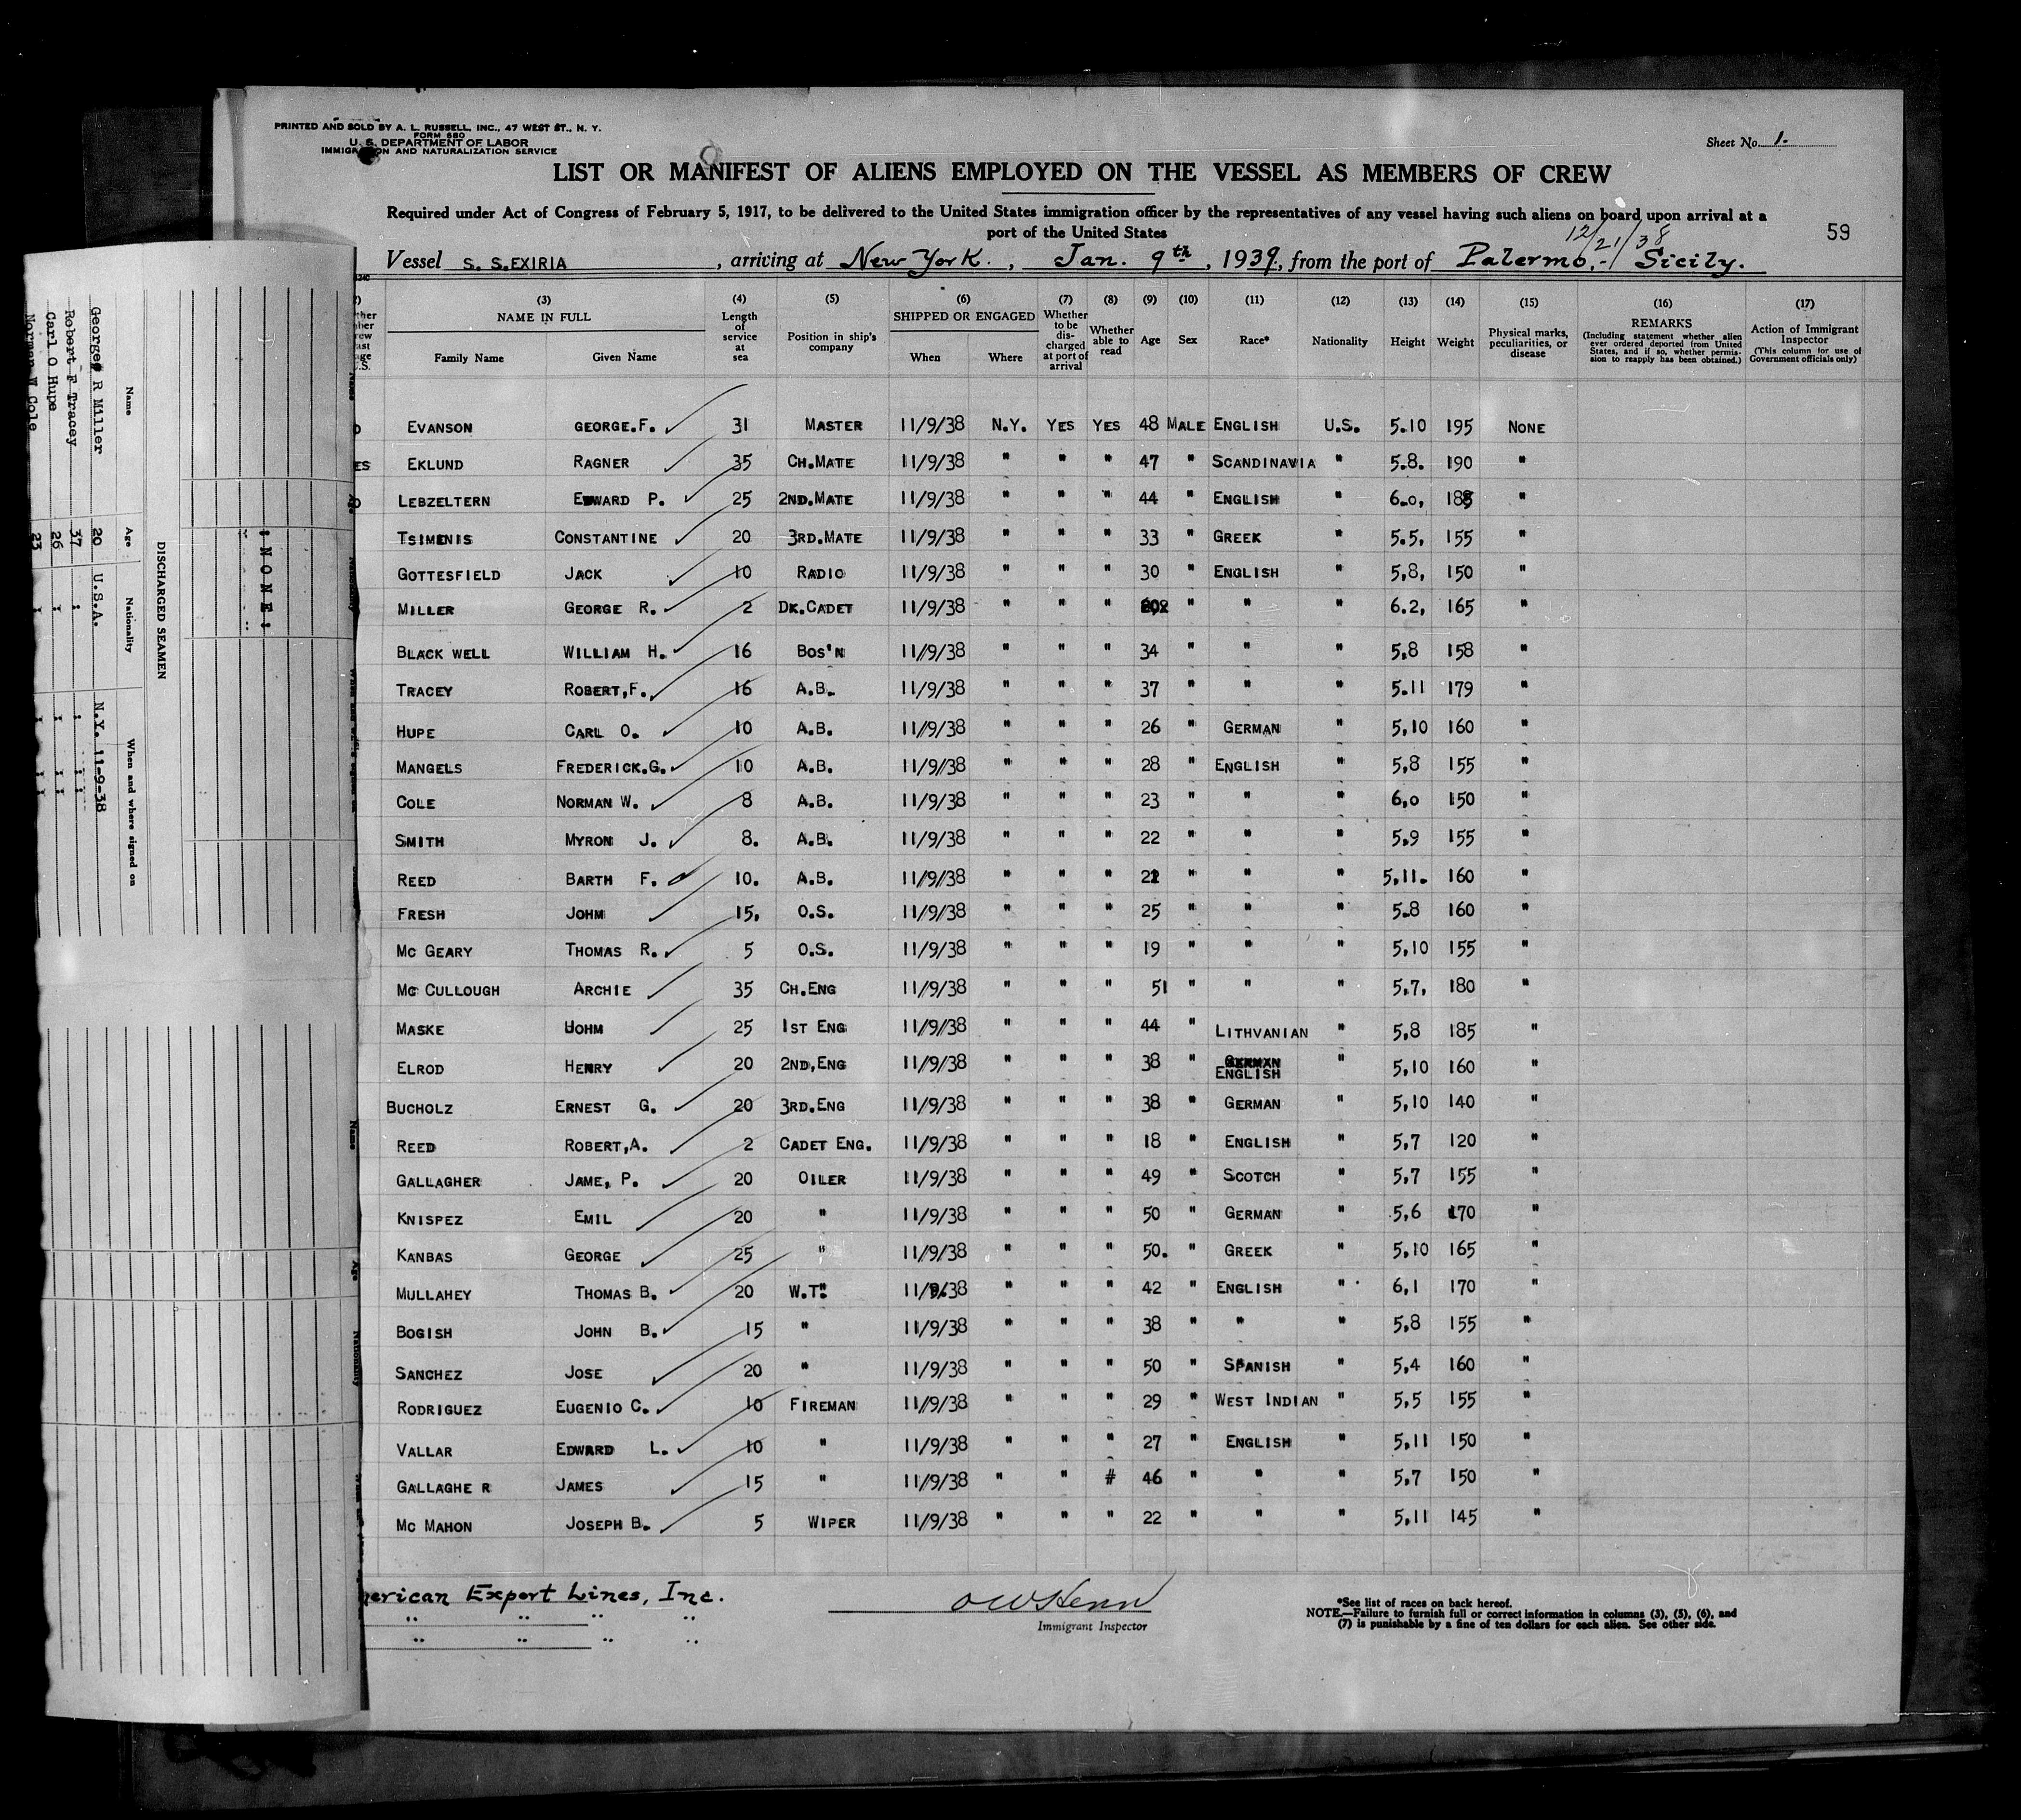 PRINTED AND SOLD BY A. L. RUSSELL, INC., 47 WEST ST., N. Y.
FORM 680
U. S. DEPARTMENT OF LABOR
IMMIGRATION AND NATURALIZATION SERVICE
Sheet No. 1.
LIST OR MANIFEST OF ALIENS EMPLOYED ON THE VESSEL AS MEMBERS OF CREW
Required under Act of Congress of February 5, 1917, to be delivered to the United States immigration officer by the representatives of any vessel having such aliens on board upon arrival at a
port of the United States
59
12/21/38
Vessel S. S. EXIRIA, arriving at New York., Jan. 9th, 1939, from the port of Palermo,- Sicily.
(3) (4) (5) (6) (7) (8) (9) (10) (11) (12) (13) (14) (15) (16) (17)
NAME IN FULL
Family Name Given Name
Length of service at sea
Position in ship's company
SHIPPED OR ENGAGED
When Where
Whether to be discharged at port of arrival
Whether able to read
Age Sex Race* Nationality Height Weight
Physical marks, peculiarities, or disease
REMARKS
(Including statement whether alien ever ordered deported from United States, and if so, whether permission to reapply has been obtained.)
Action of Immigrant Inspector
(This column for use of Government officials only)
EVANSON GEORGE.F. 31 MASTER 11/9/38 N.Y. YES YES 48 MALE ENGLISH U.S. 5.10 195 NONE
ES EKLUND RAGNER 35 CH.MATE 11/9/38 " " " 47 " SCANDINAVIA " 5.8. 190 "
LEBZELTERN EDWARD P. 25 2ND.MATE 11/9/38 " " " 44 " ENGLISH " 6.0, 185 "
TSIMENIS CONSTANTINE 20 3RD.MATE 11/9/38 " " " 33 " GREEK " 5.5, 155 "
GOTTESFIELD JACK 10 RADIO 11/9/38 " " " 30 " ENGLISH " 5,8, 150 "
MILLER GEORGE R. 2 DK.CADET 11/9/38 " " " " " " 6.2, 165 "
BLACK WELL WILLIAM H. 16 BOS'N 11/9/38 " " " 34 " " " 5,8 158 "
TRACEY ROBERT,F. 16 A.B. 11/9/38 " " " 37 " " " 5.11 179 "
HUPE CARL O. 10 A.B. 11/9/38 " " " 26 " GERMAN " 5,10 160 "
MANGELS FREDERICK.G. 10 A.B. 11/9/38 " " " 28 " ENGLISH " 5,8 155 "
COLE NORMAN W. 8 A.B. 11/9/38 " " " 23 " " " 6,0 150 "
SMITH MYRON J. 8. A.B. 11/9/38 " " " 22 " " " 5,9 155 "
REED BARTH F. 10. A.B. 11/9/38 " " " 22 " " " 5,11. 160 "
FRESH JOHM 15, O.S. 11/9/38 " " " 25 " " " 5.8 160 "
MC GEARY THOMAS R. 5 O.S. 11/9/38 " " " 19 " " " 5,10 155 "
MC CULLOUGH ARCHIE 35 CH.ENG 11/9/38 " " " 51 " " " 5.7, 180 "
MASKE UOHM 25 1ST ENG 11/9/38 " " " 44 " LITHVANIAN " 5,8 185 "
ELROD HENRY 20 2ND,ENG 11/9/38 " " " 38 " GERMAN ENGLISH " 5,10 160 "
BUCHOLZ ERNEST G. 20 3RD.ENG 11/9/38 " " " 38 " GERMAN " 5,10 140 "
REED ROBERT,A. 2 CADET ENG. 11/9/38 " " " 18 " ENGLISH " 5,7 120 "
GALLAGHER JAME, P. 20 OILER 11/9/38 " " " 49 " SCOTCH " 5,7 155 "
KNISPEZ EMIL 20 " 11/9/38 " " " 50 " GERMAN " 5,6 170 "
KANBAS GEORGE 25 " 11/9/38 " " " 50. " GREEK " 5,10 165 "
MULLAHEY THOMAS B. 20 W.T. 11/9/38 " " " 42 " ENGLISH " 6,1 170 "
BOGISH JOHN B. 15 " 11/9/38 " " " 38 " " " 5,8 155 "
SANCHEZ JOSE 20 " 11/9/38 " " " 50 " SPANISH " 5,4 160 "
RODRIGUEZ EUGENIO C. 10 FIREMAN 11/9/38 " " " 29 " WEST INDIAN " 5,5 155 "
VALLAR EDWARD L. 10 " 11/9/38 " " " 27 " ENGLISH " 5,11 150 "
GALLAGHE R JAMES 15 " 11/9/38 " " # 46 " " " 5,7 150 "
MC MAHON JOSEPH B. 5 WIPER 11/9/38 " " " 22 " " " 5,11 145 "
merican Export Lines, Inc.
" " " "
" " " "
Immigrant Inspector
*See list of races on back hereof.
NOTE.—Failure to furnish full or correct information in columns (3), (5), (6), and
(7) is punishable by a fine of ten dollars for each alien. See other side.
: N O N E :
DISCHARGED SEAMEN
Name Age Nationality When and where signed on
George R Miller 20 U.S.A. N.Y. 11-9-38
Robert F Tracey 37 : : :
Carl O Hupe 26 : : :
Norman W Cole 23 : : :